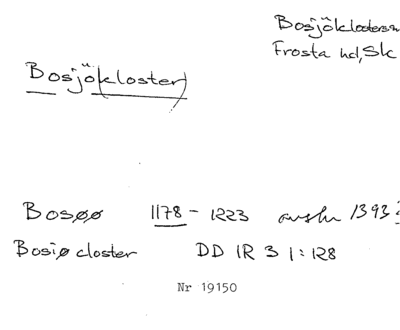 Bosjöklosters
Frosta hd, Sk
Bosjökloster
Bosøø 1178 - 1223 avskr 1393
Bosiø closter DD 1R 3 1:128
Nr 19150